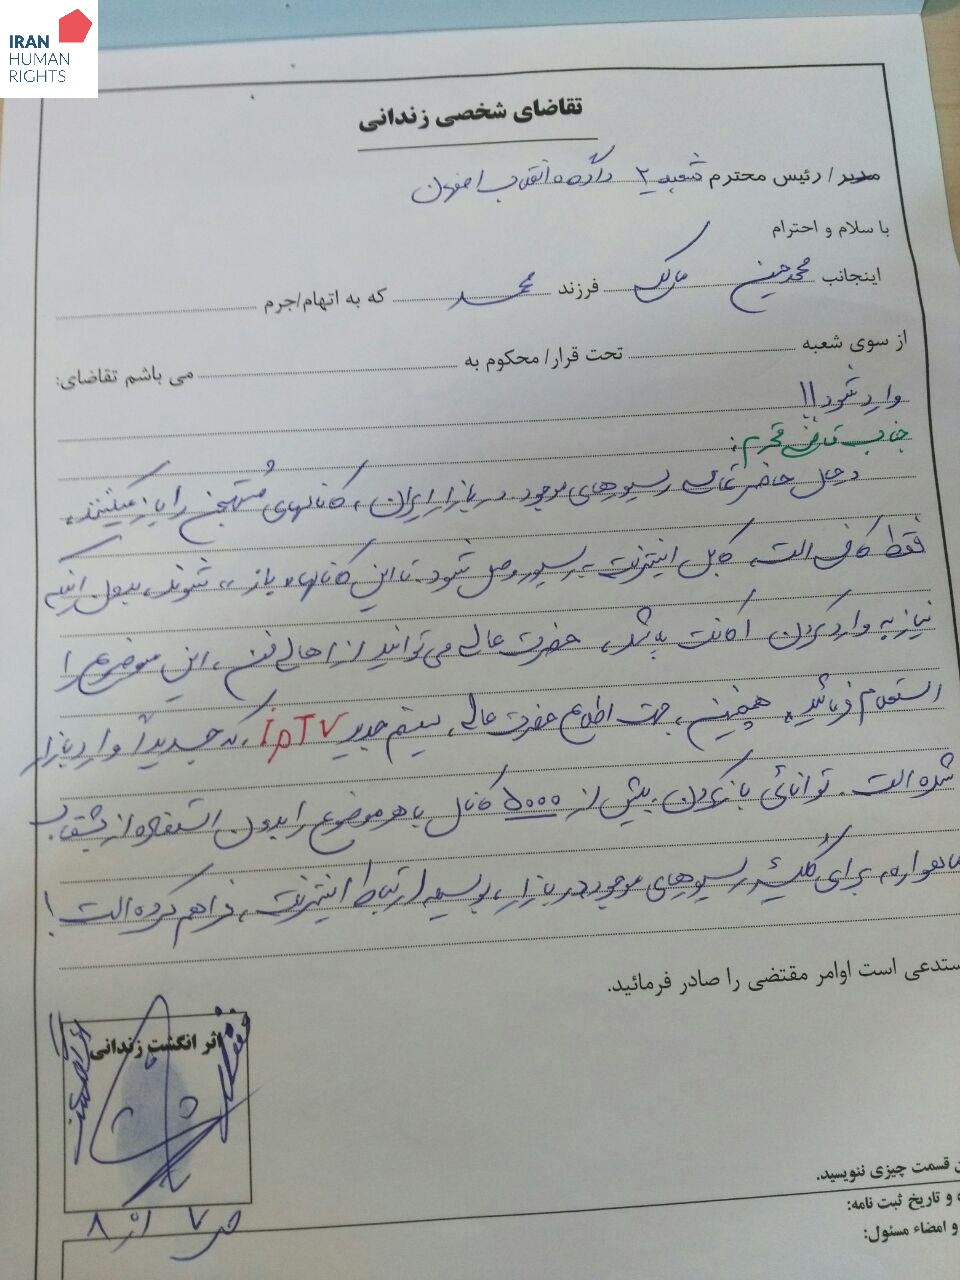 IRAN
HUMAN
RIGHTS
تقاضای شخصی زندانی
مدیر / رئیس محترم شعبه ۲ دادگاه انقلاب اصفهان
با سلام و احترام
اینجانب محمدحسین مالک فرزند محمد که به اتهام/جرم
از سوی شعبه تحت قرار/ محکوم به می باشم تقاضای:
وارد شود!!
جناب قاضی محترم:
در حال حاضر تمامی رسیورهای موجود در بازار ایران، کانالهای مُستهجن را باز میکنند.
فقط کافی است، کابل اینترنت به رسیور وصل شود. تا این کانالها، باز، شوند، بدون اینکه
نیاز به وارد کردن اکانت باشد. حضرت عالی می توانید از اهالی فن، این موضوع را
استعلام فرمائید. همچنین، جهت اطلاع حضرت عالی، سیستم جدید IPTV، که جدیداً وارد بازار
شده است. توانائی باز کردن، بیش از ۵۰۰۰ کانال با هر موضوع را بدون استفاده از بشقاب
ماهواره، برای کُلیهٔ رسیورهای موجود در بازار، بوسیله ارتباط اینترنت، فراهم کرده است!
مستدعی است اوامر مقتضی را صادر فرمائید.
اثر انگشت زندانی
ص ۷ از ۸
ن قسمت چیزی ننویسید.
ه و تاریخ ثبت نامه:
و امضاء مسئول: